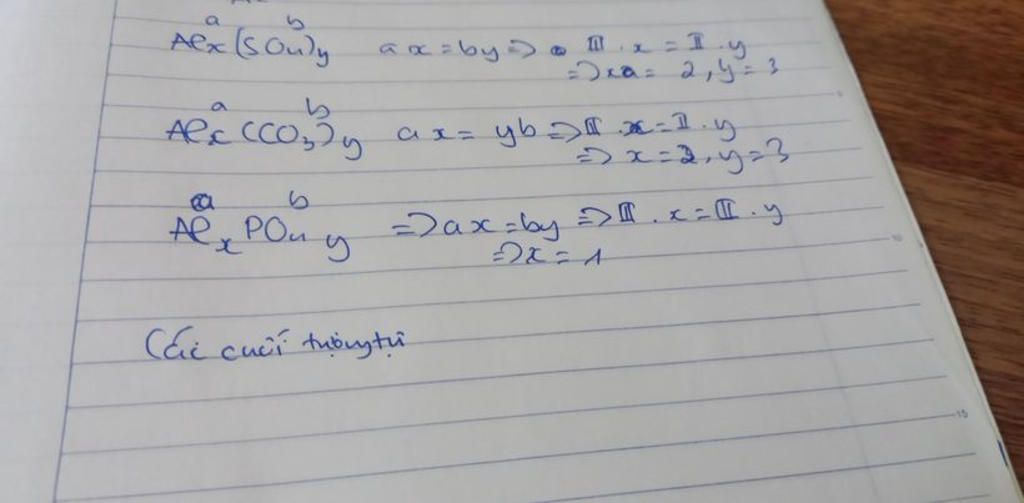 a b
Alx(SO4)y ax=by => III.x = II.y
=> xa = 2, y = 3
a b
Alx(CO3)y ax = yb => II.x = I.y
=> x = 2, y = 3
a b
Alx PO4 y => ax = by => III.x = III.y
=> x = 1
10
Các cuối tương tự
15